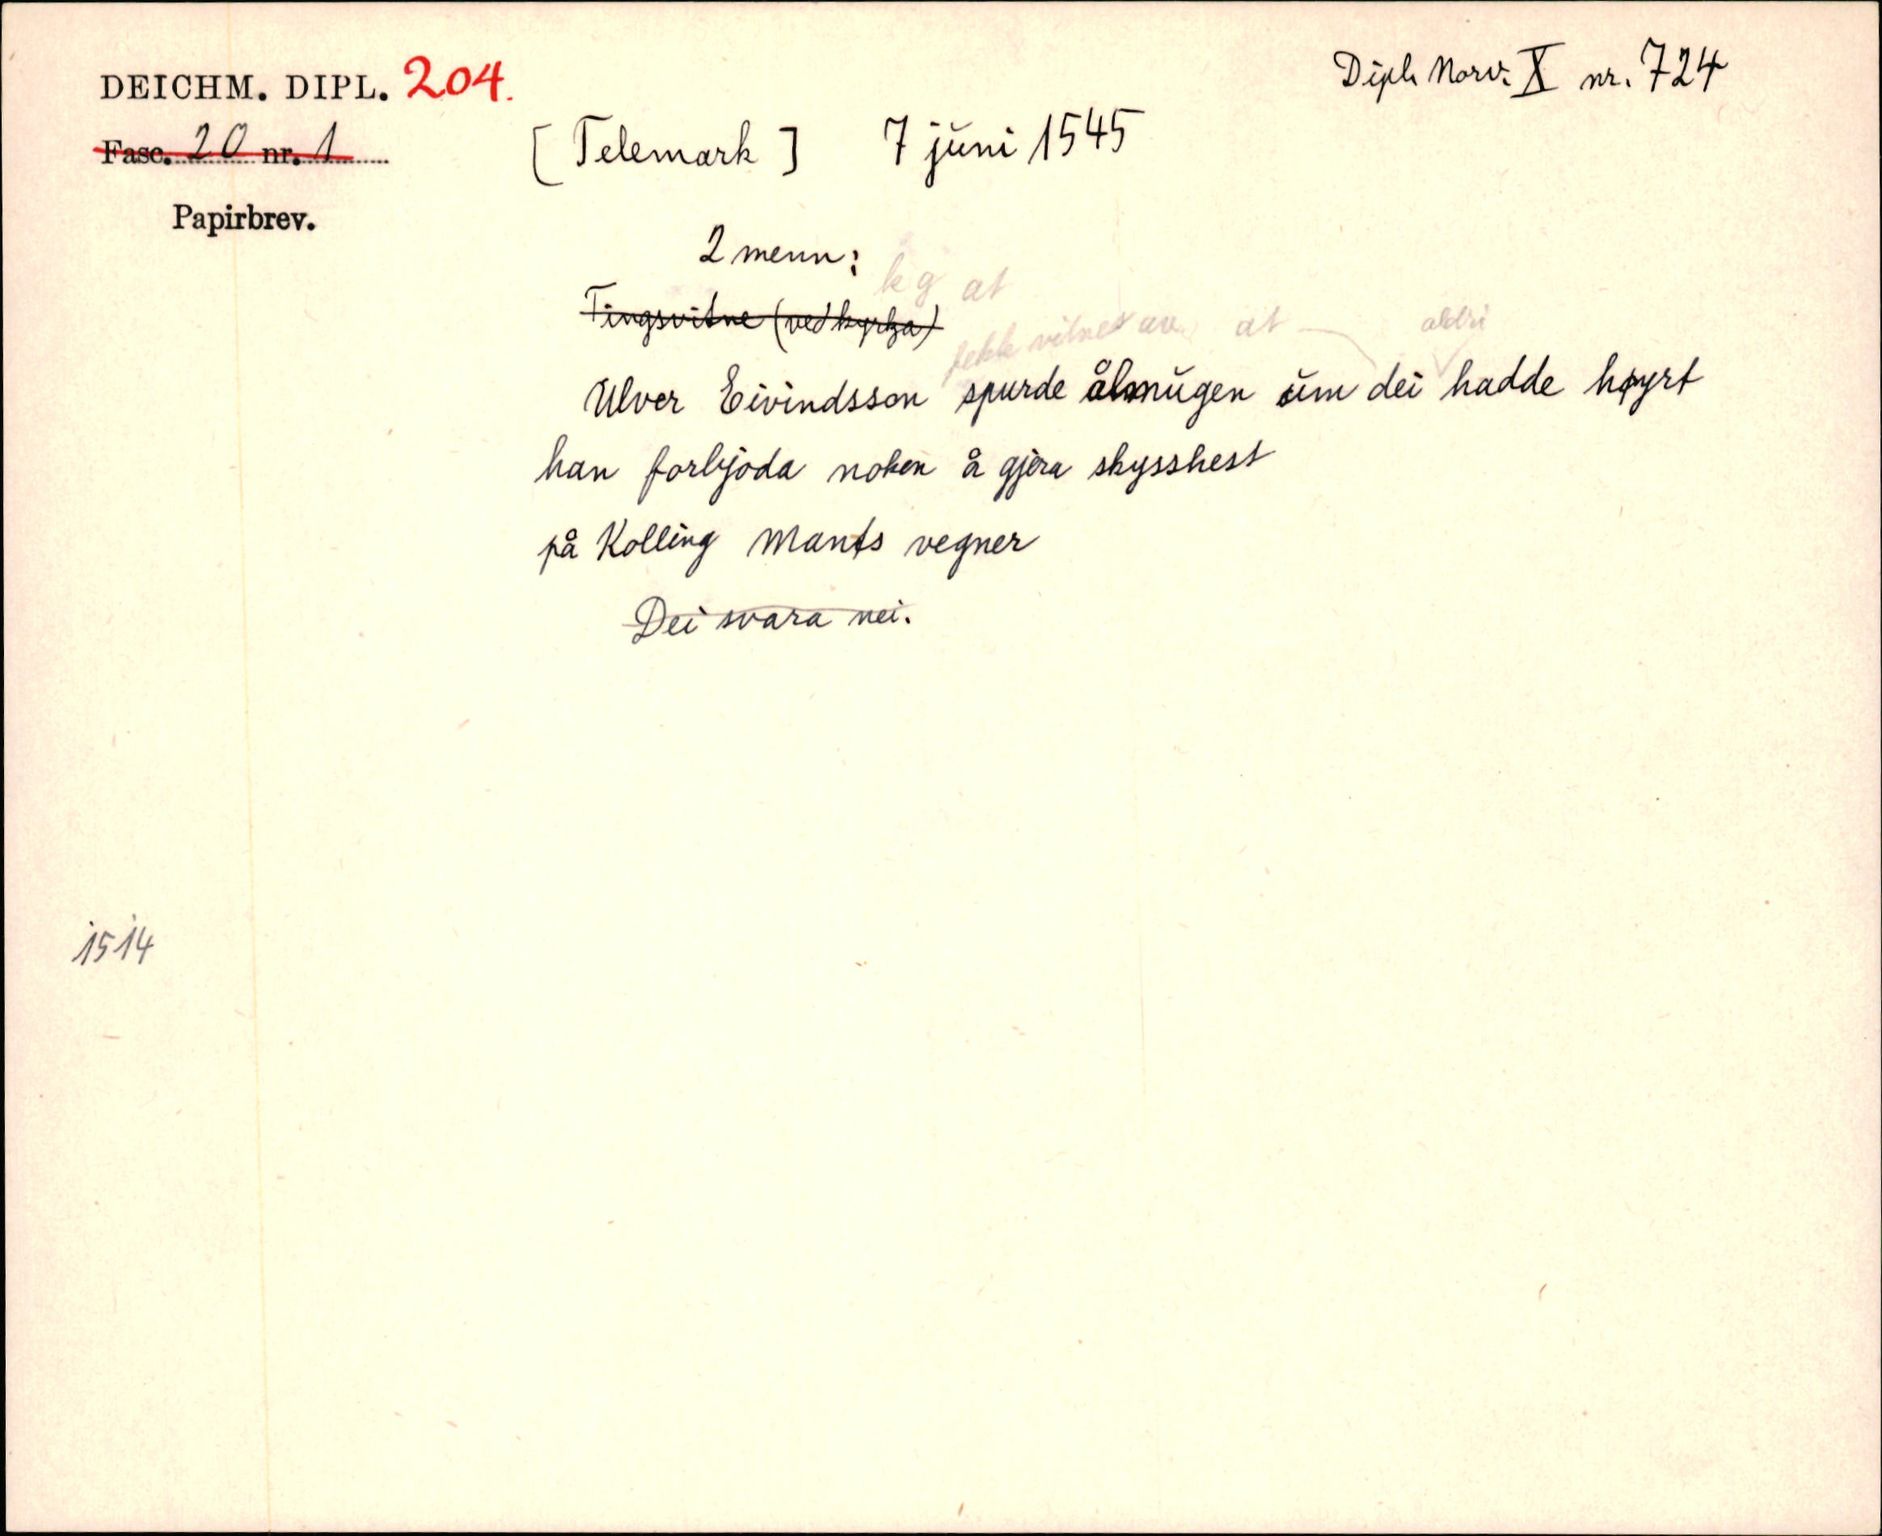 DEICHM. DIPL. 204.
Dipl. Norv. X nr. 724
Fasc. 20 nr. 1
[Telemark] 7 juni 1545
Papirbrev.
2 menn:
k g at
Tingsvitne (ved kyrkja)
fekk vitnes av at aldri
Ulver Eivindsson spurde ålmugen um dei hadde høyrt
han forbjoda noken å gjera skysshest
på Kolling Mants vegner
Dei svara nei.
1514